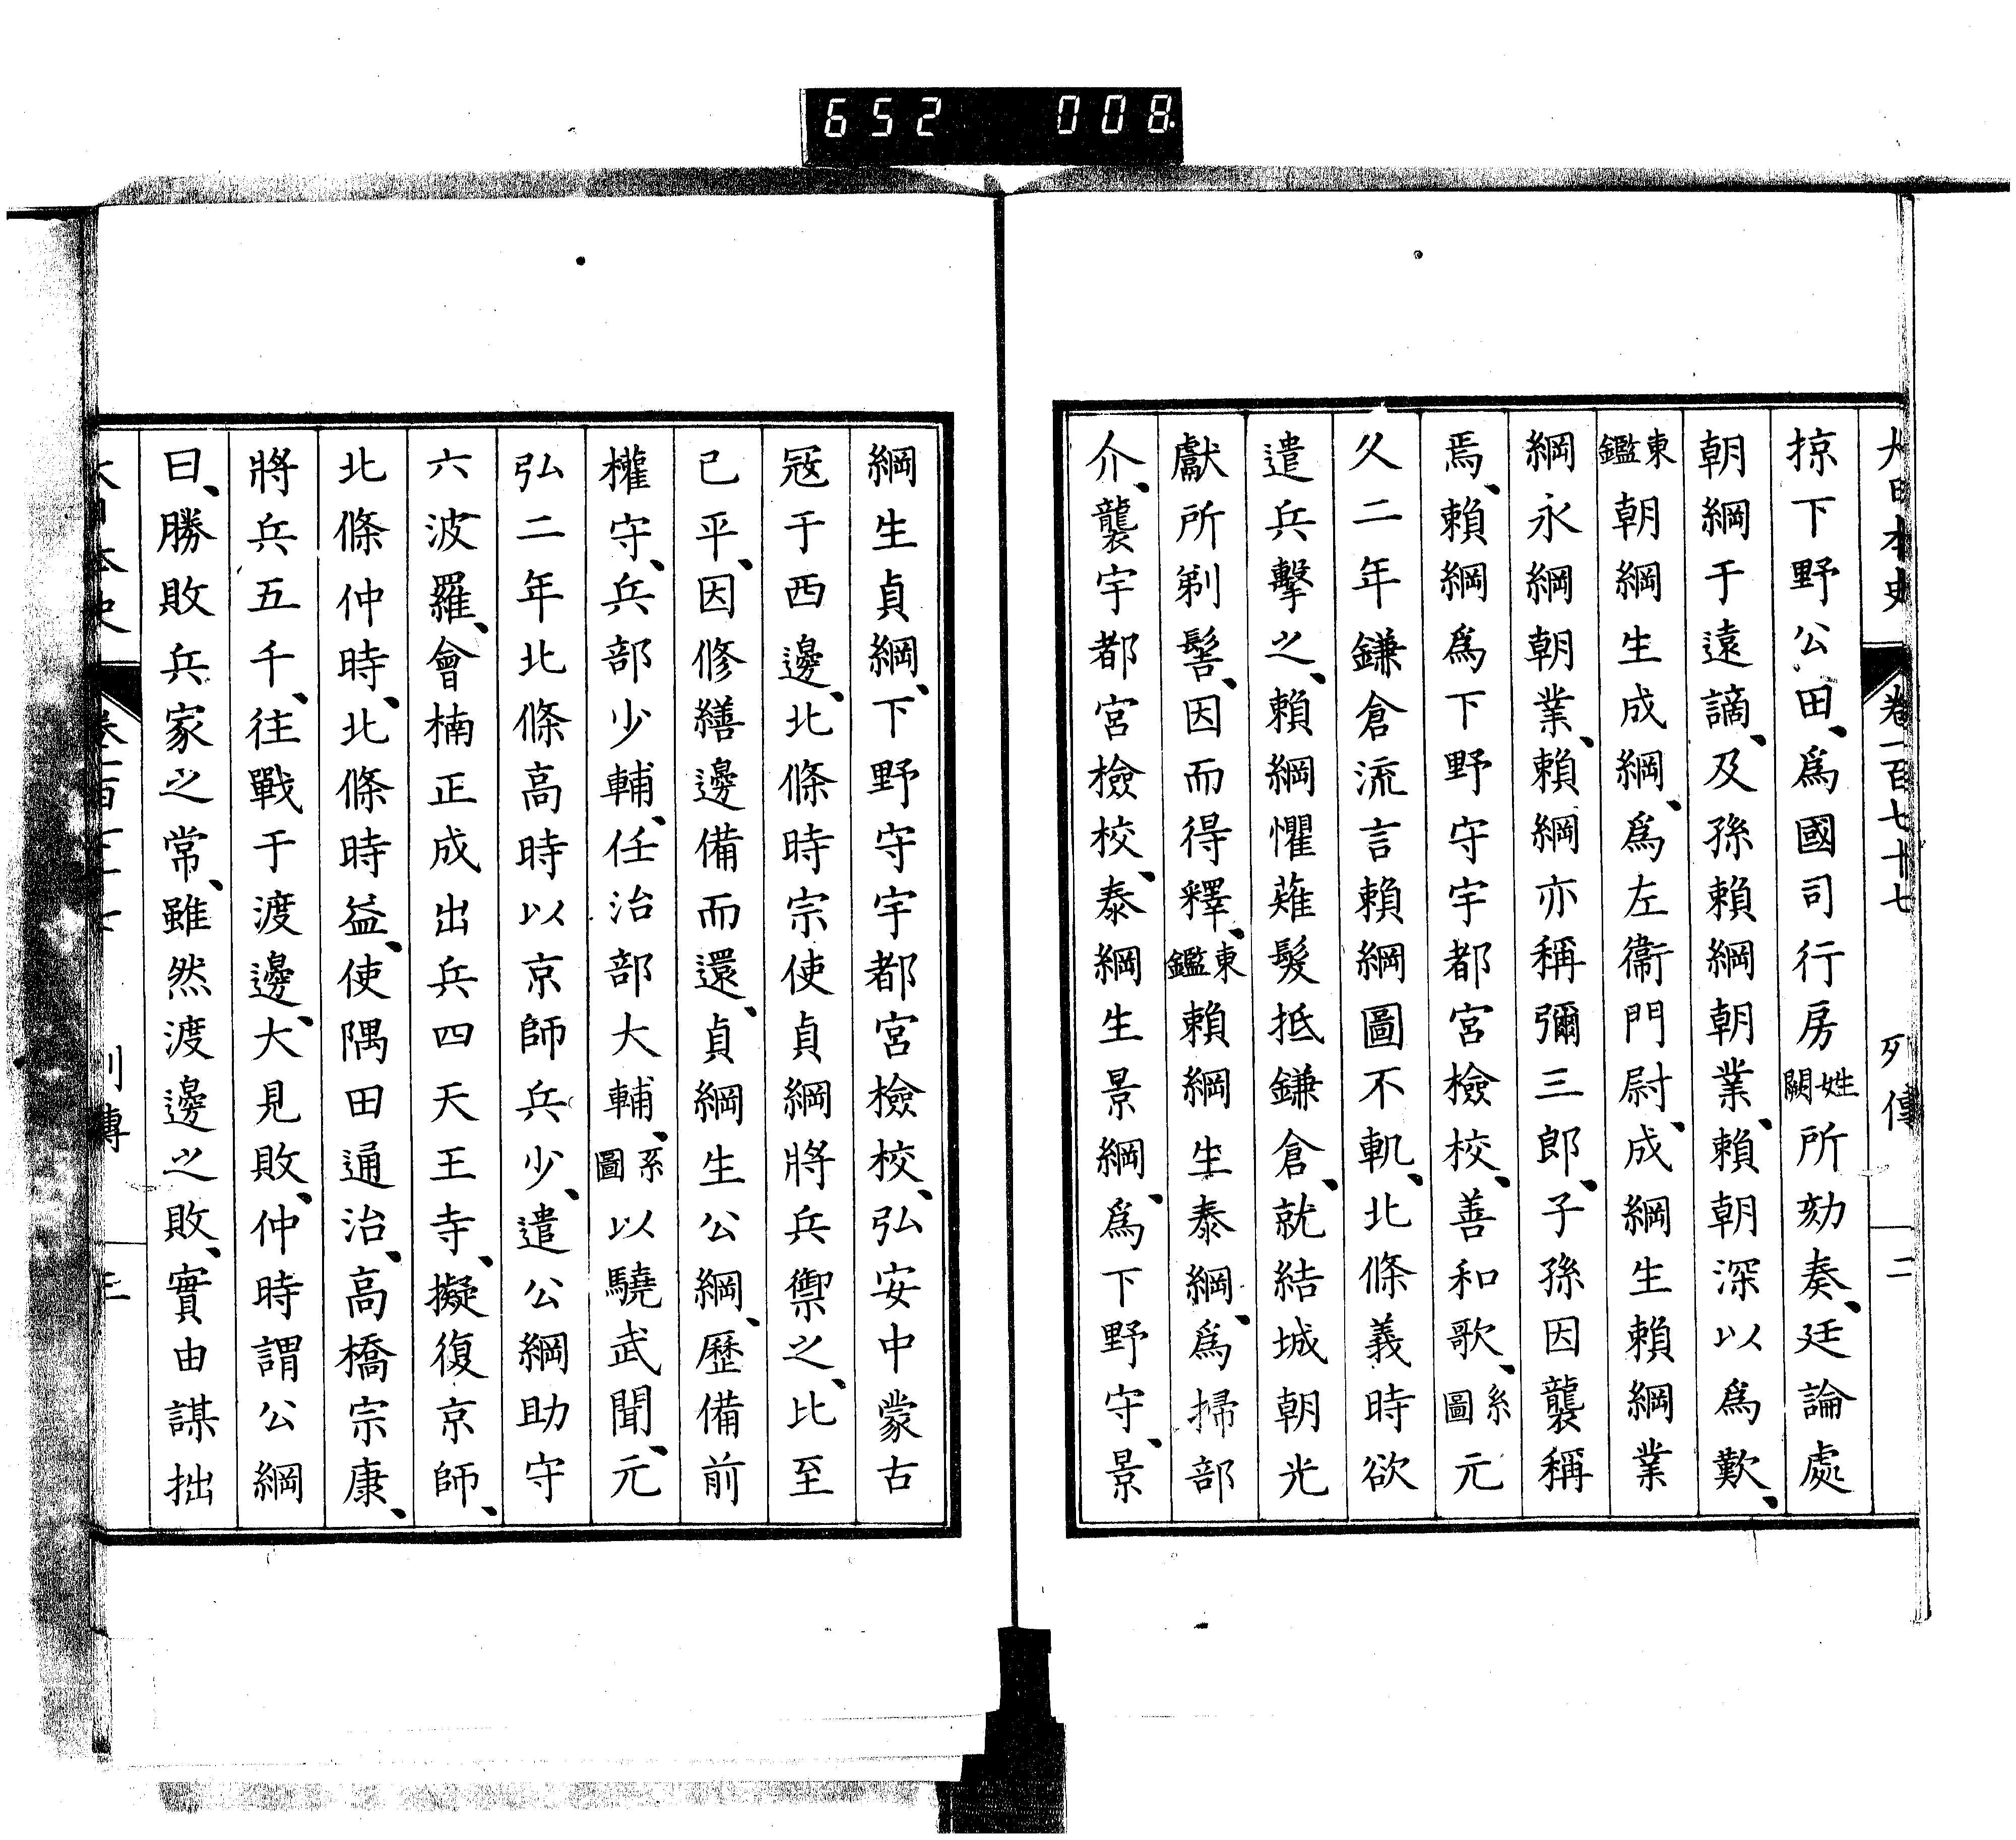 652 008
大日本史 卷一百七十七 列傳 二
掠下野公田、爲國司行房姓闕所劾奏、廷論處
朝綱于遠謫、及孫賴綱朝業、賴朝深以爲歎、
東鑑朝綱生成綱、爲左衞門尉、成綱生賴綱業
綱永綱朝業、賴綱亦稱彌三郎、子孫因襲稱
焉、賴綱爲下野守宇都宮檢校、善和歌、系圖元
久二年鎌倉流言賴綱圖不軌、北條義時欲
遣兵擊之、賴綱懼薙髮抵鎌倉、就結城朝光
獻所剃髻、因而得釋、東鑑賴綱生泰綱、爲掃部
介、襲宇都宮檢校、泰綱生景綱、爲下野守、景
綱生貞綱、下野守宇都宮檢校、弘安中蒙古
寇于西邊、北條時宗使貞綱將兵禦之、比至
已平、因修繕邊備而還、貞綱生公綱、歷備前
權守、兵部少輔、任治部大輔、系圖以驍武聞、元
弘二年北條高時以京師兵少、遣公綱助守
六波羅、會楠正成出兵四天王寺、擬復京師、
北條仲時、北條時益、使隅田通治、高橋宗康、
將兵五千、往戰于渡邊、大見敗、仲時謂公綱
曰、勝敗兵家之常、雖然渡邊之敗、實由謀拙
大日本史 卷一百七十七 列傳 三